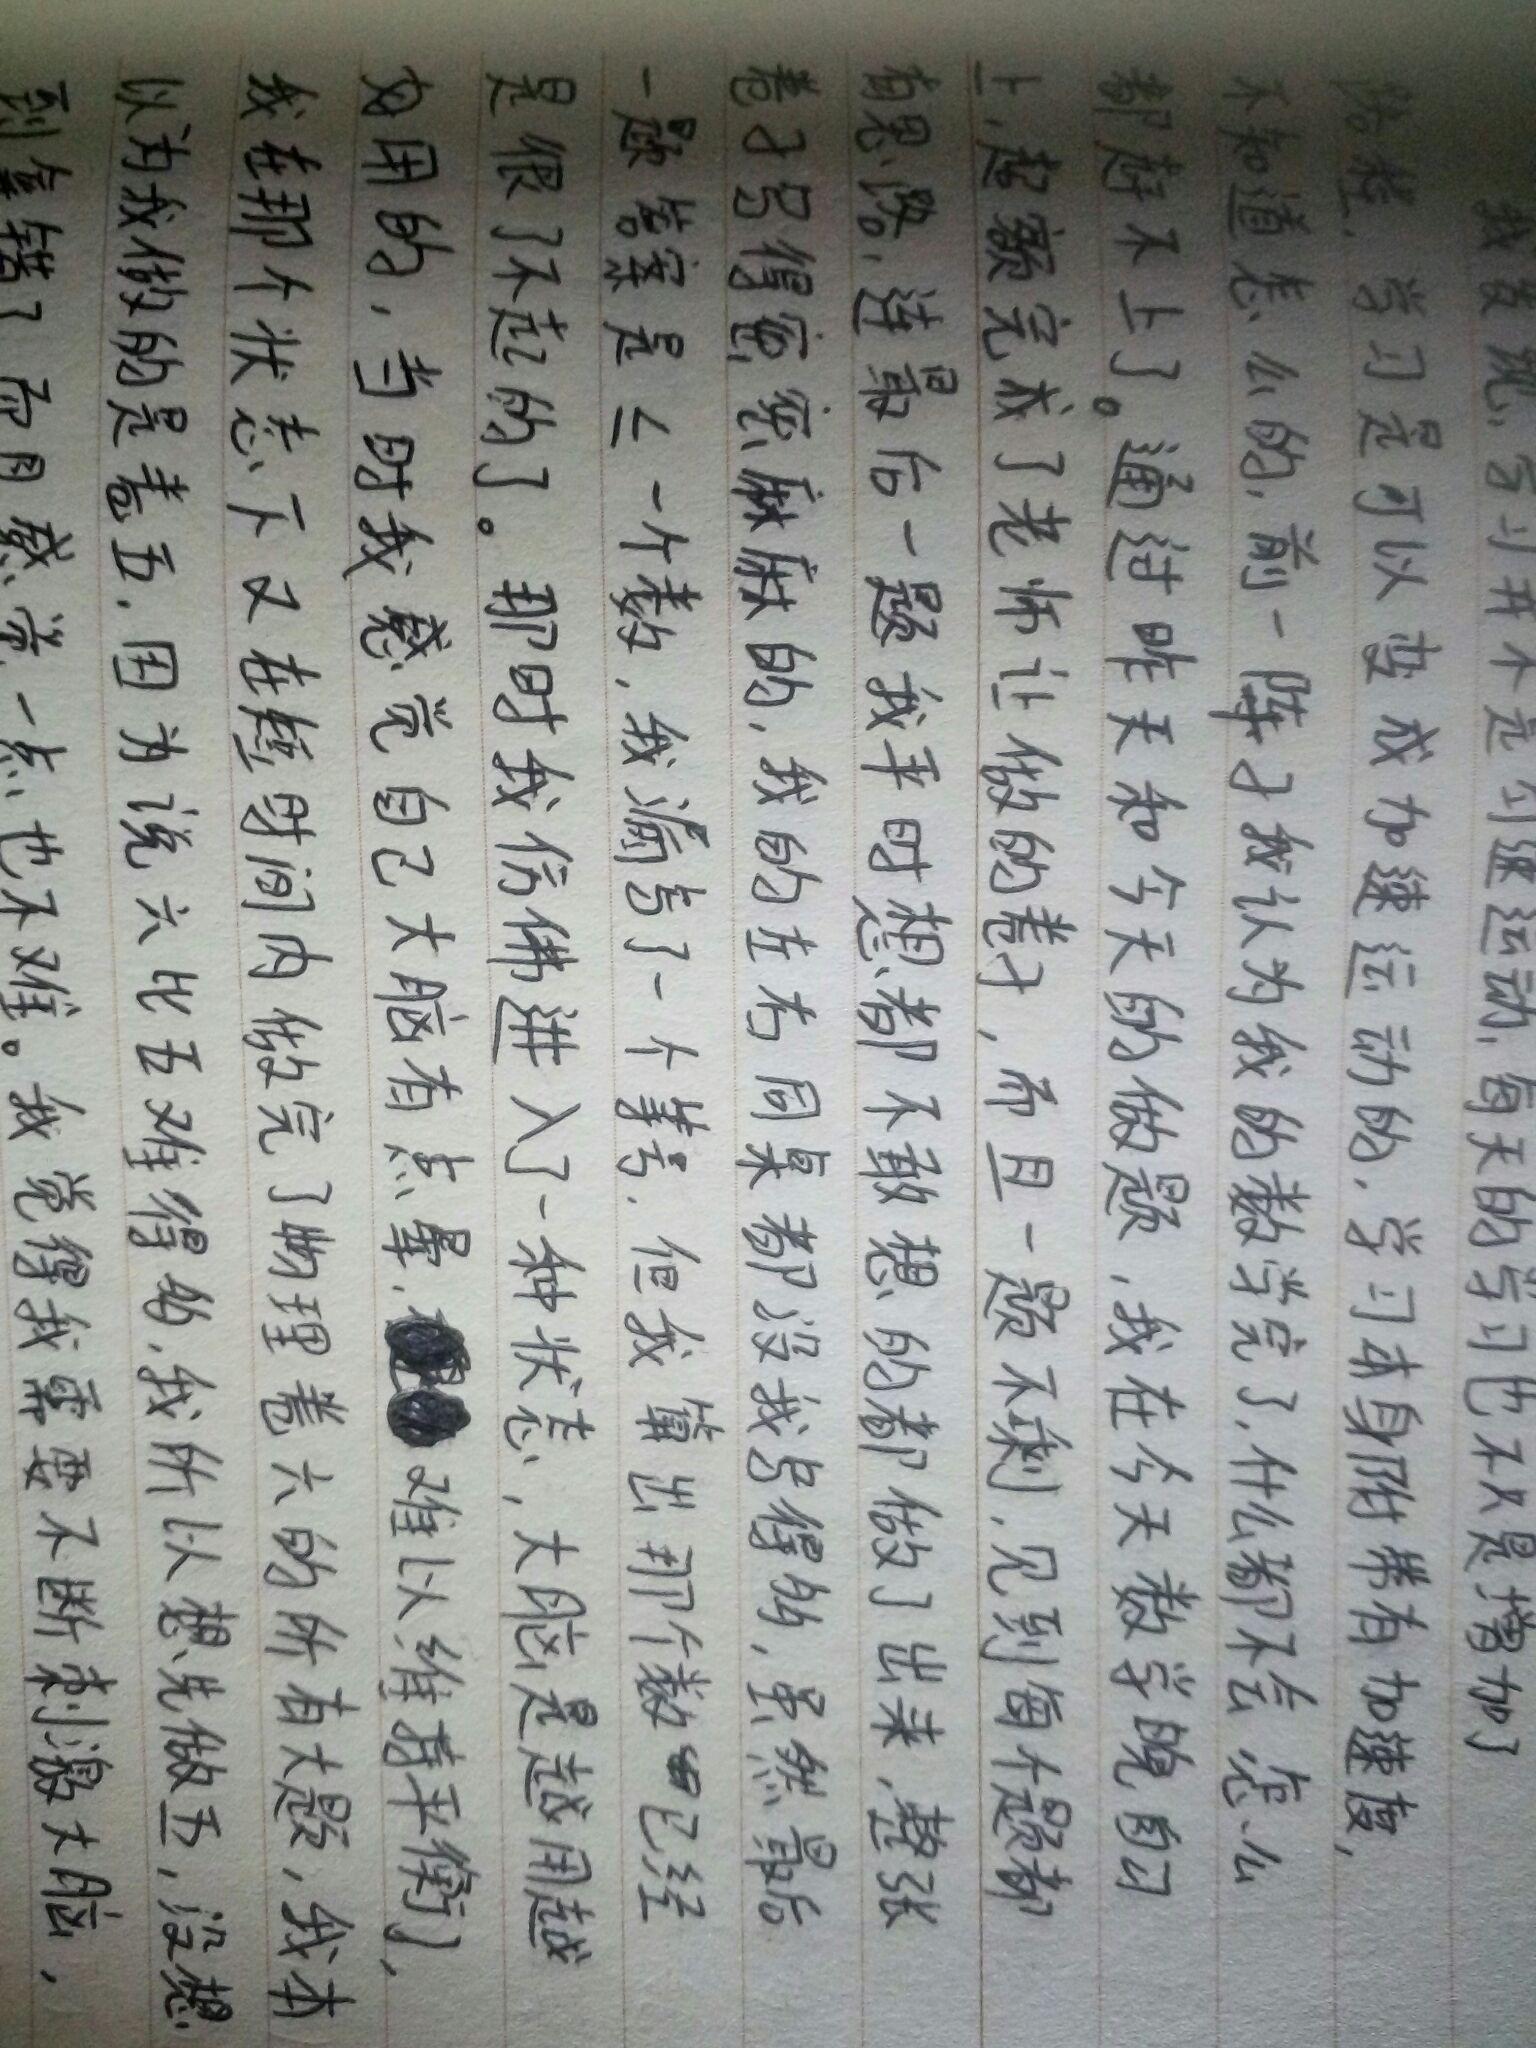 我发现,学习并不是匀速运动,每天的学习也不只是增加了
路程,学习是可以变成加速运动的,学习本身附带有加速度,
不知道怎么的,前一阵子我认为我的数学完了,什么都不会,怎么
都赶不上了。通过昨天和今天的做题,我在今天数学晚自习
上,超额完成了老师让做的卷子,而且一题不剩,见到每个题都
有思路,连最后一题我平时想都不敢想的都做了出来,整张
卷子写得密密麻麻的,我的左右同桌都没我写得多,虽然最后
一题答案是三一个数,我漏写了一个或写,但我算出那个数已经
是很了不起的了。那时我仿佛进入了一种状态,大脑是越用越
好用的,当时我感觉自己大脑有点晕,难以维持平衡了,
我在那个状态下又在短时间内做完了物理卷六的所有大题,我本
以为我做的是卷五,因为说六比五难得多,我所以想先做五,没想
到拿错了,而且感觉一点也不难。我觉得我需要不断刺激大脑,